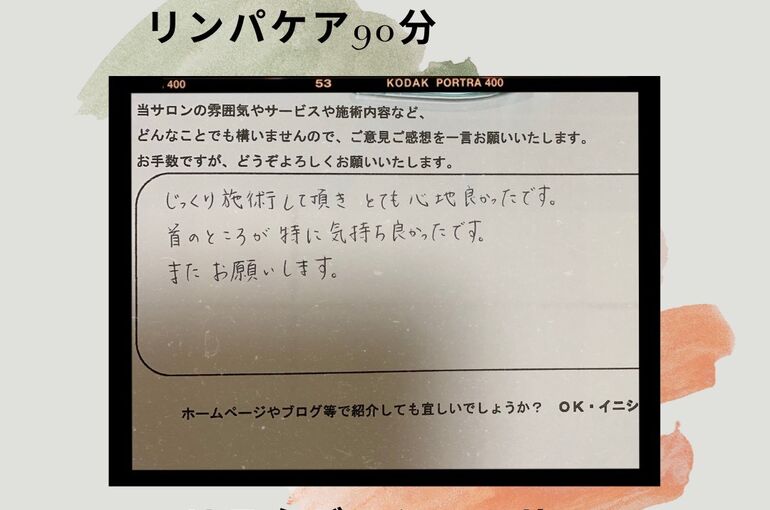 リンパケア90分
400 53 KODAK PORTRA 400
当サロンの雰囲気やサービスや施術内容など、
どんなことでも構いませんので、ご意見ご感想を一言お願いいたします。
お手数ですが、どうぞよろしくお願いいたします。
じっくり施術して頂き とても心地良かったです。
首のところが特に気持ち良かったです。
また お願いします。
ホームページやブログ等で紹介しても宜しいでしょうか? OK・イニシ